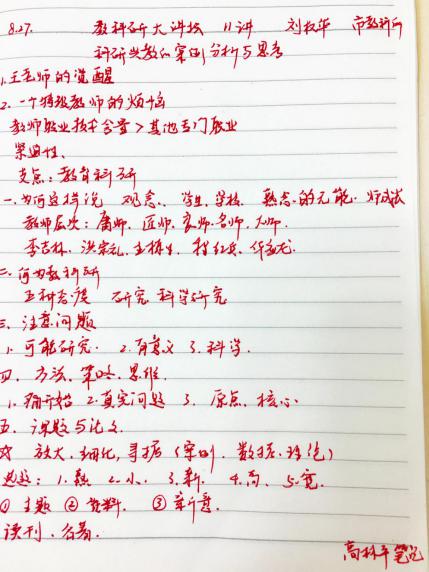 8.27. 教科研大讲坛 11讲 刘权华 市教科所
科研兴教的案例分析与思考
1.王老师的觉醒
2.一个特级教师的烦恼
教师职业技术含量>其他专门职业
紧迫性、
支点:教育科研
一.为何这样说 观念、学生、学校、熟念的无能.
教师层次:庸师、匠师、良师.名师.大师.
李吉林、洪宗礼、
二.何为教科研
研究 科学研究
三.注意问题
1.可能研究. 2.有意义 3.科学.
四.方法、策略、思维.
1.痛开始 2.真实问题 3.原点、核心.
五.课题与论文.
☆ 放大、细化,寻据(案例.数据.理论)
选题:1.熟 2.小. 3.新. 4.高、5.宽.
① 主题 ② 资料. ③ 新意.
读刊.名著.
高林平笔记